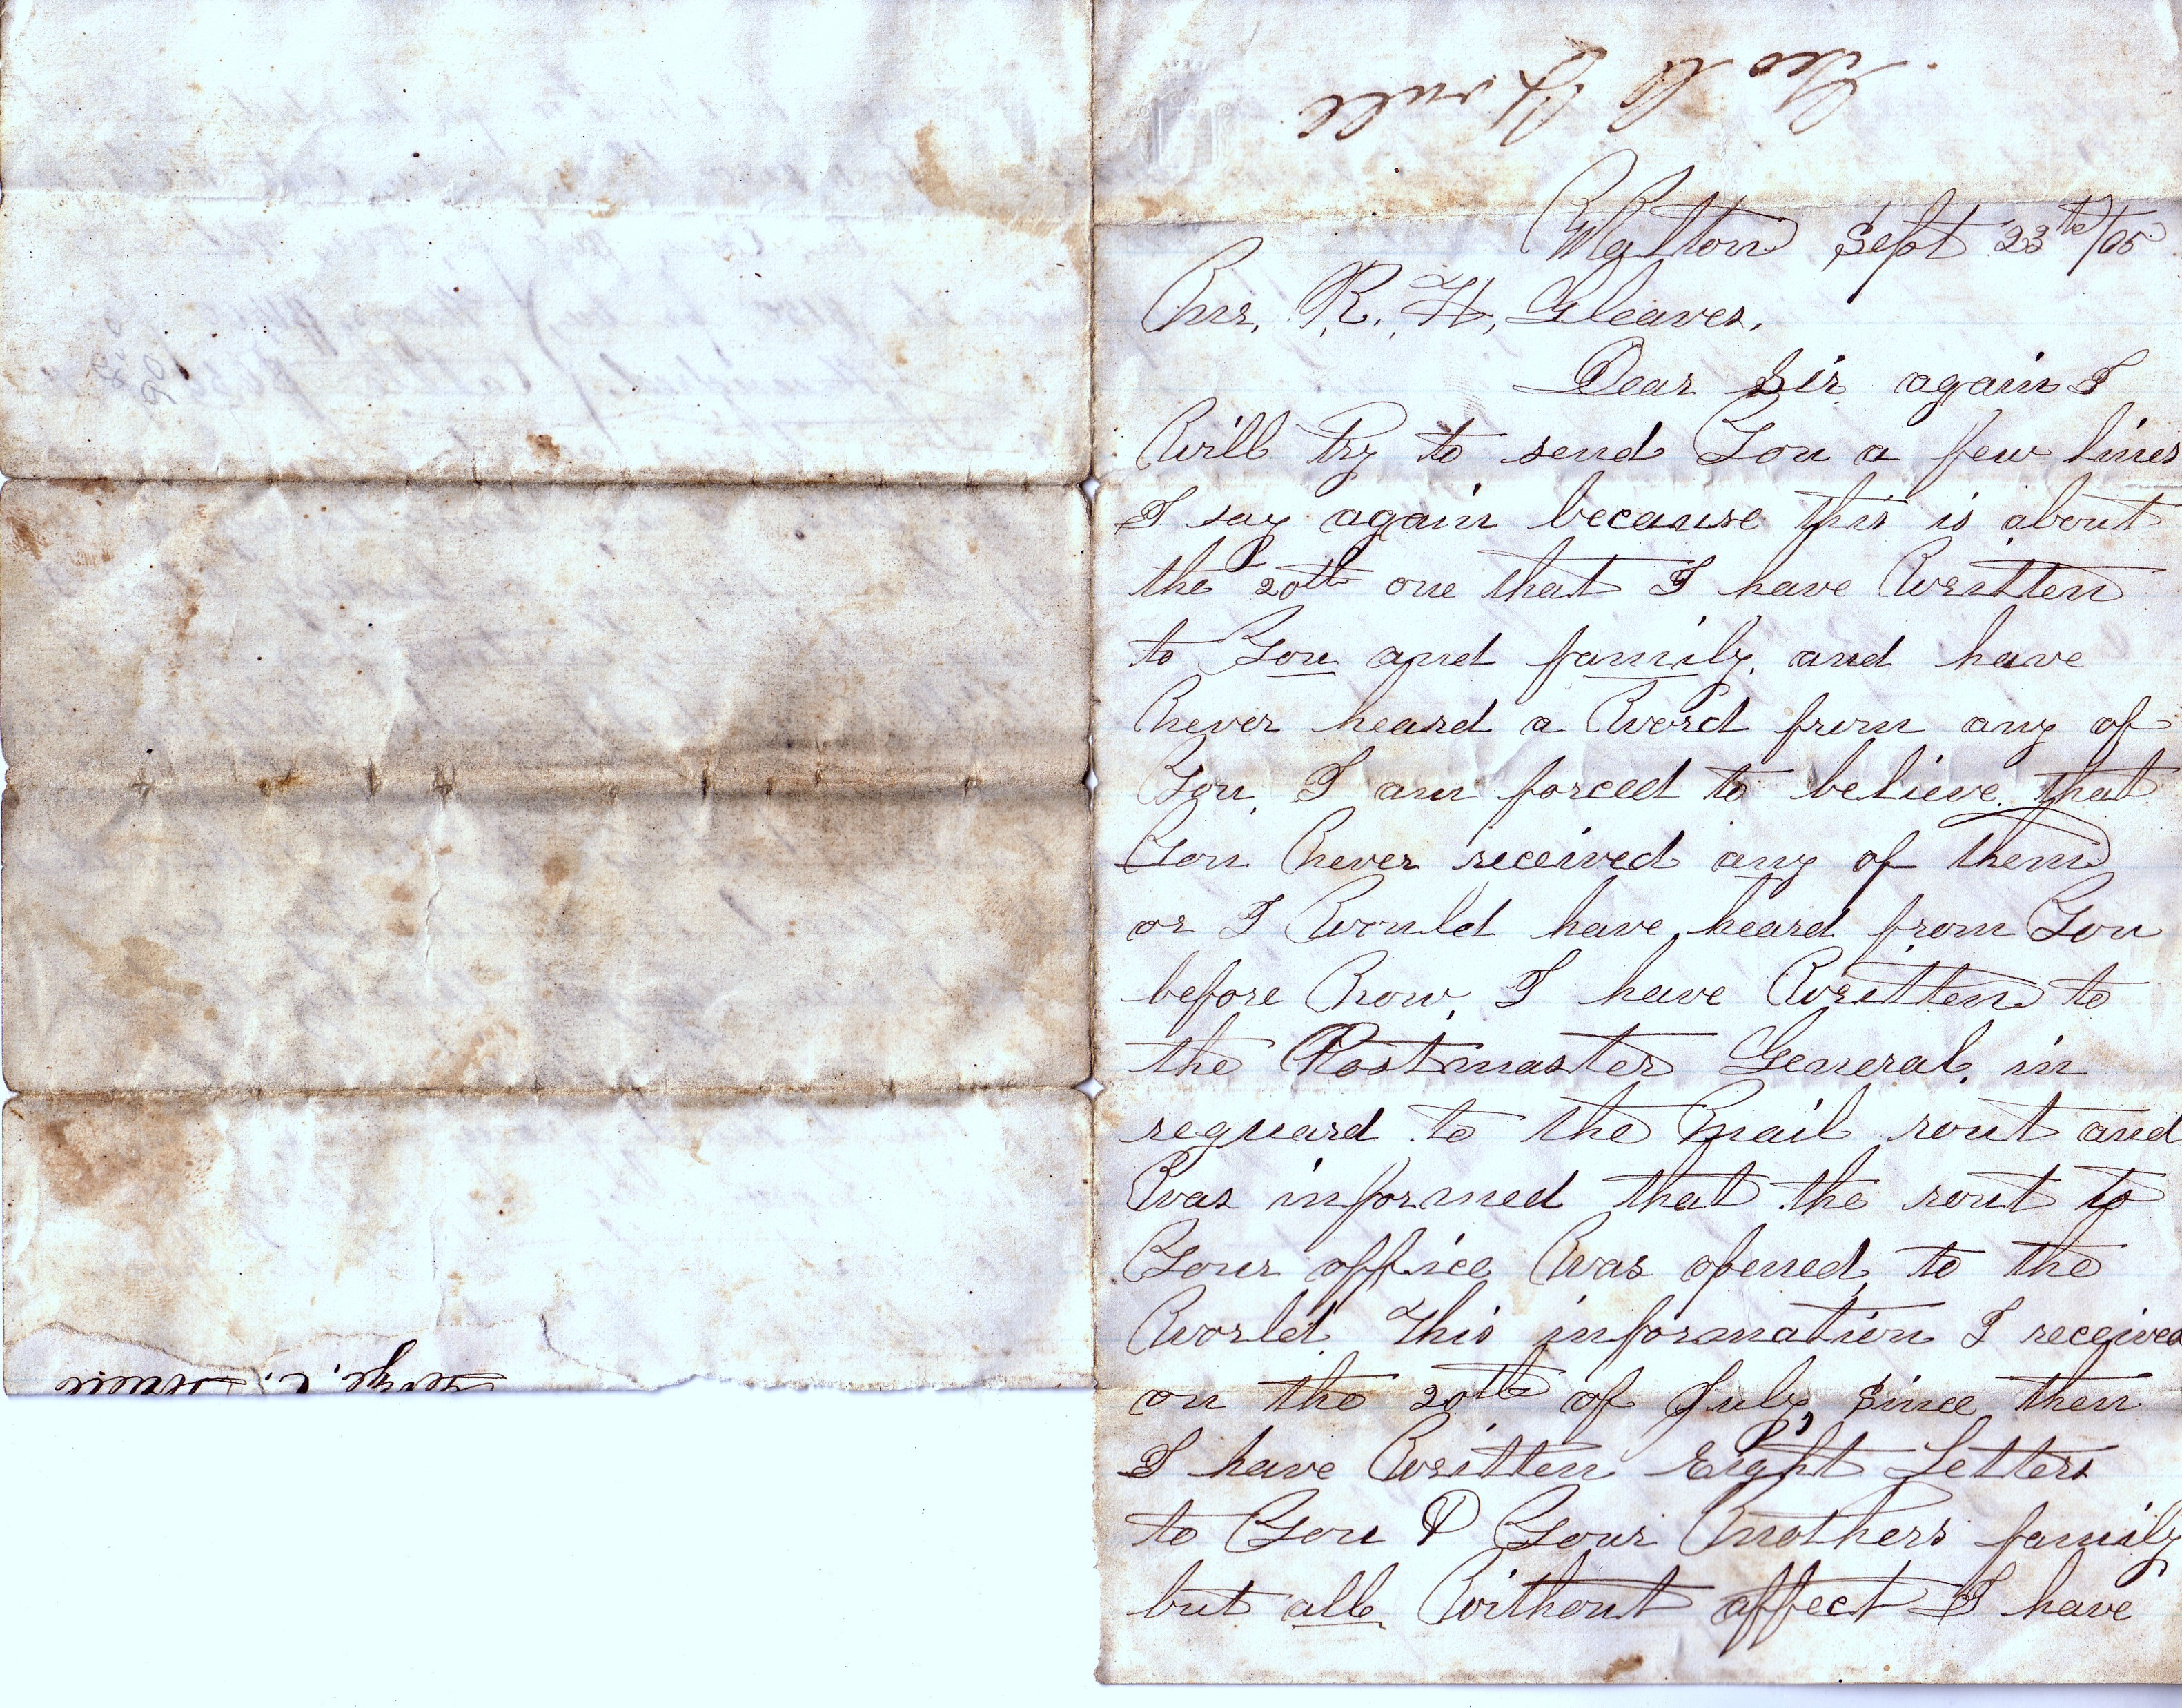 Geo C
Walton Sept 23th/65
Mr. R. H. Gleaves.
Dear Sir again I
Will try to send You a few lines
I say again because this is about
the 20th one that I have Written
to You and family, and have
Never heard a Word from any of
You, I am forced to believe that
You Never received any of them
or I Would have heard from You
before Now, I have Written to
the Postmaster General, in
reguard to the Mail rout and
Was informed that the rout to
Your office Was opened to the
World. This information I received
on the 20th of July, Since then
I have Written Eight Letters
to You & Your Mothers family
but all Without affect I have
George. C.